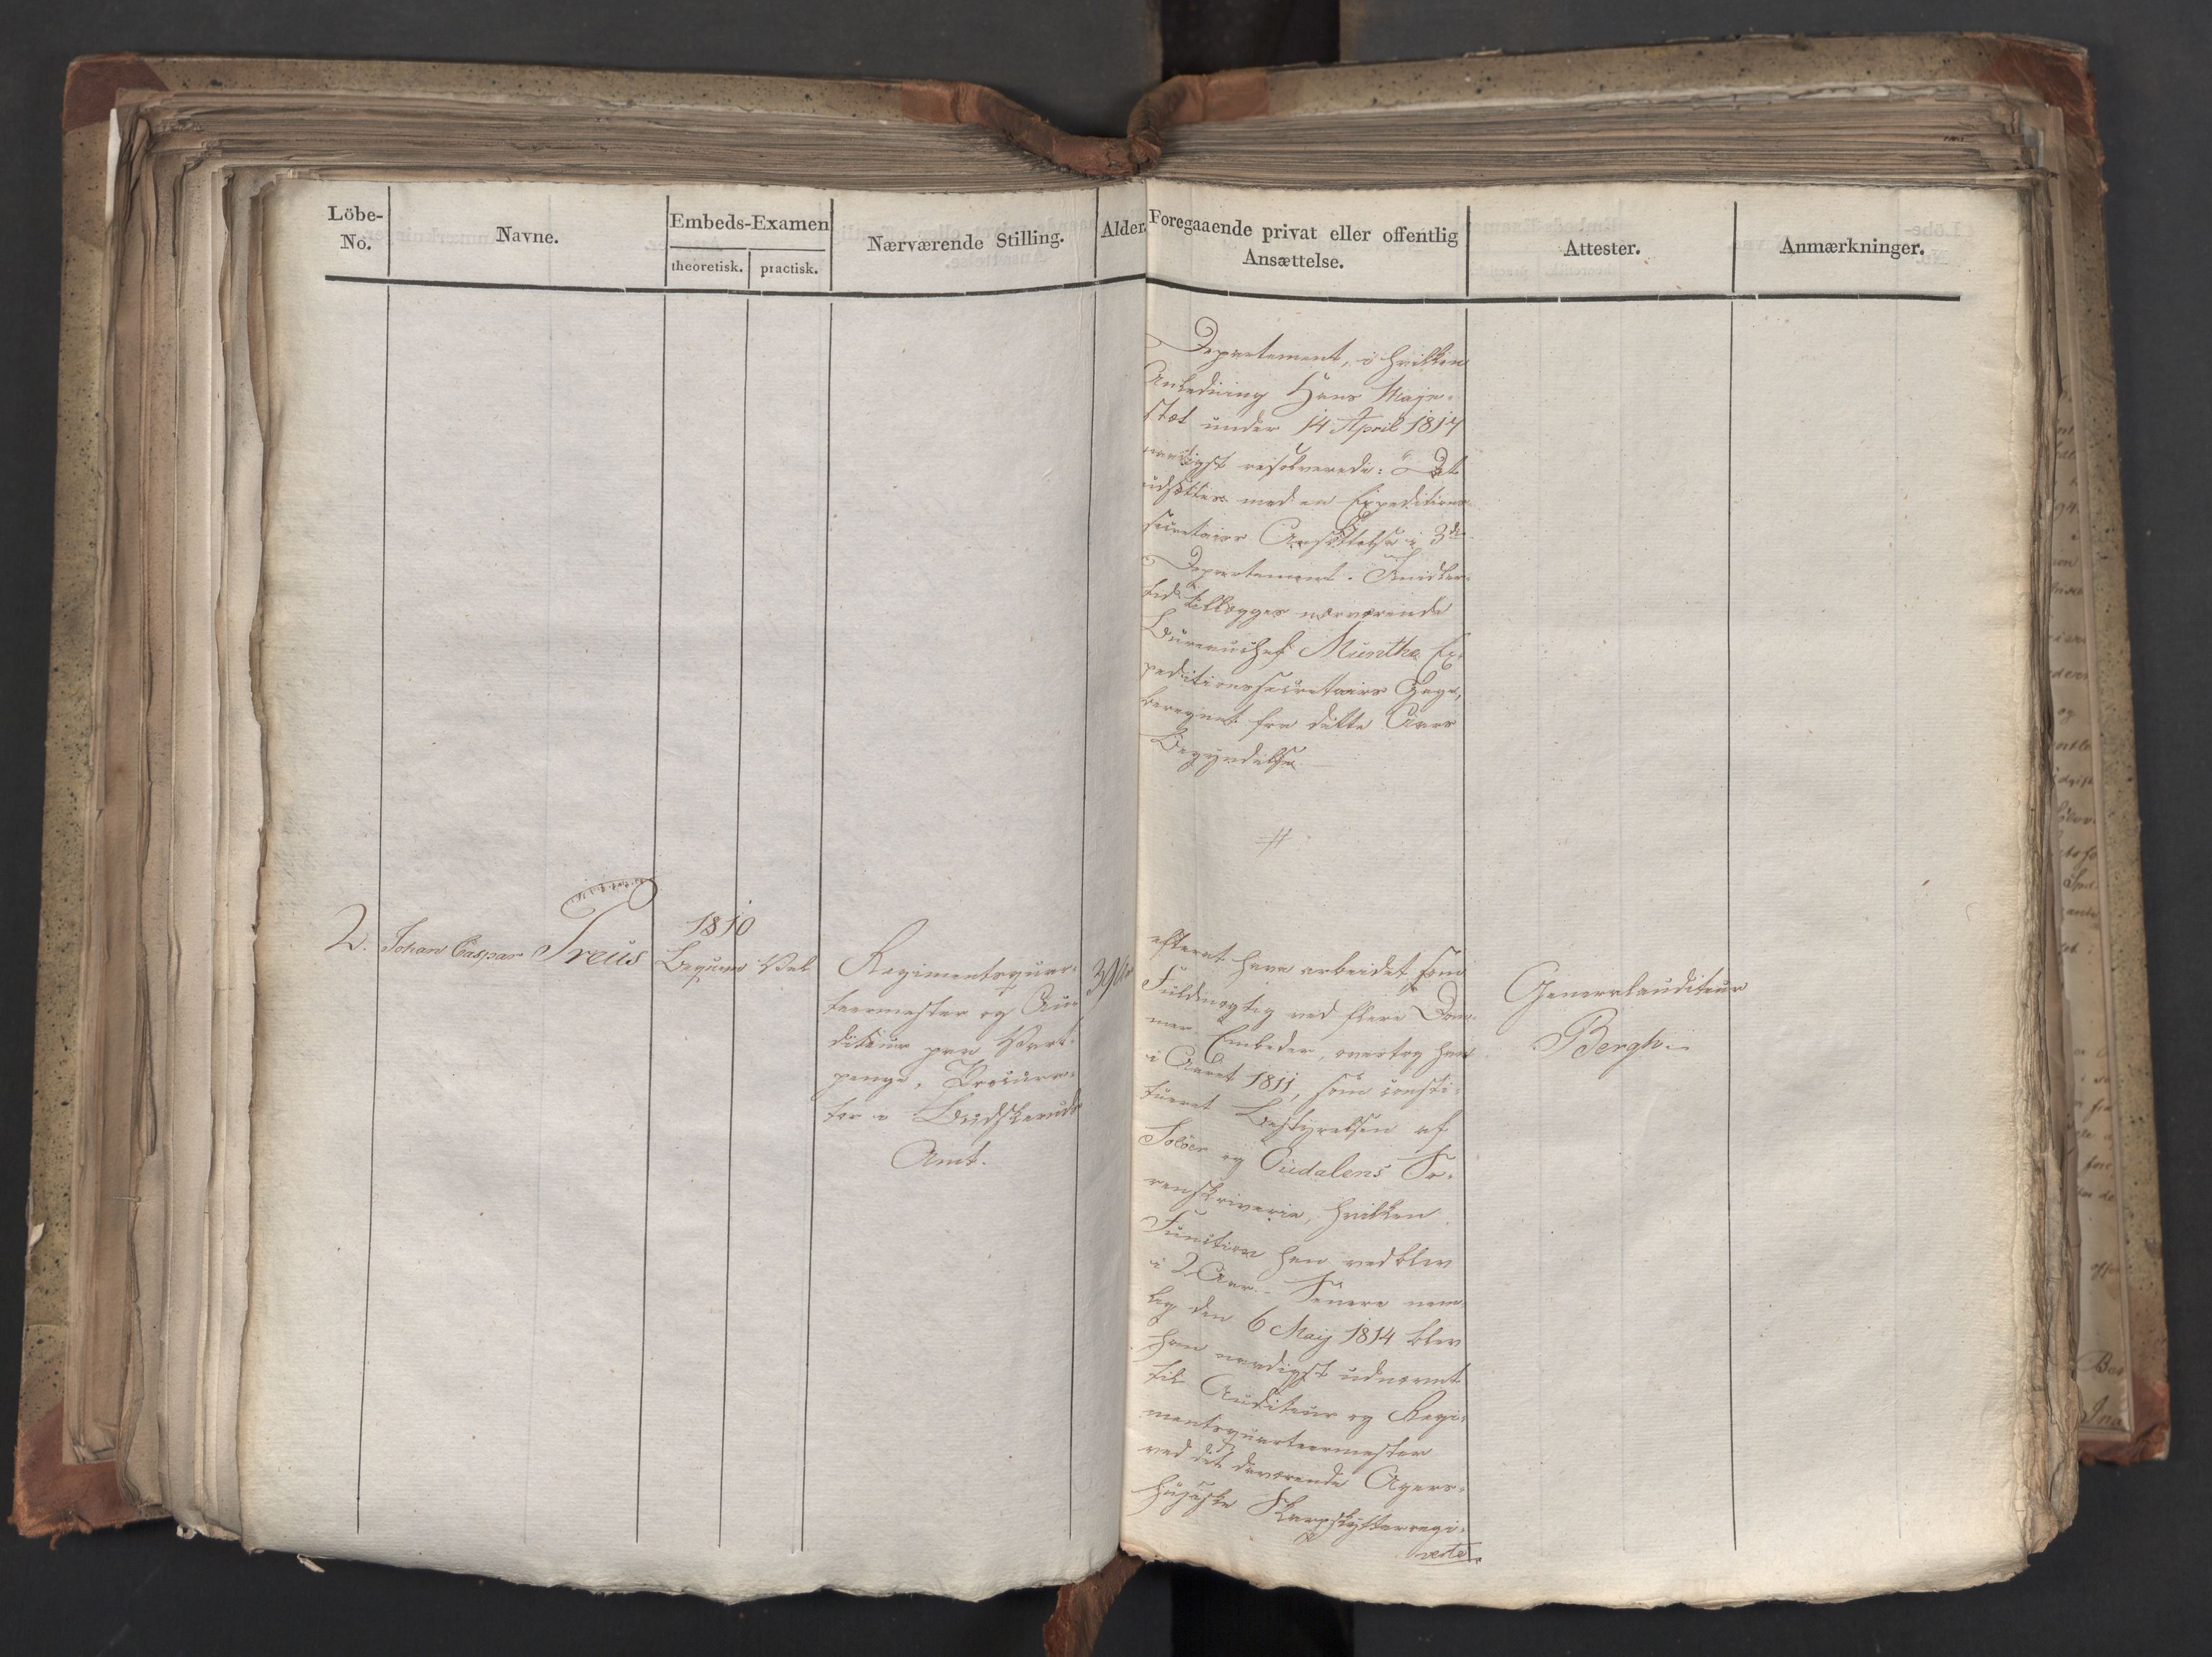 Löbe-
No.
Navne.
Embeds-Examen
theoretisk. practisk.
Nærværende Stilling.
Alder.
Foregaaende privat eller offentlig
Ansættelse.
Attester.
Anmærkninger.
Departement, i hvilken
Anledning Hans Maje-
stæt under 14 April 1817
naadigst resolverede: Det
udsættes med en Expeditions-
secretairs Ansættelse i 3die
Departement. Imidler-
tid tillægges nærværende
Bureauchef Munthe Ex-
peditionssecretairs Gage,
beregnet fra dette Aars
Begyndelse
2.
Johan Caspar Treus
1810
Beqvem Vel
Regimentsqvar-
teermester og Au-
diteur paa Vart-
penge, Procura-
tor i Budskeruds
Amt.
39 Aar
efterat have arbeidet som
Fuldmægtig ved flere Dom-
mer-Embeder, overtog han
i Aaret 1811, som consti-
tueret Bestyrelsen af
Soløer og Oudalens So-
renskriverie, hvilken
Function han vedblev
i 2 Aar. Senere nem-
lig den 6 May 1814 blev
han naadigst udnævnt
til Auditeur og Regi-
mentsqvarteermester
ved det daværende Agers-
huusiske Skarpskytterregi-
verte
Generalauditeur
Bergh